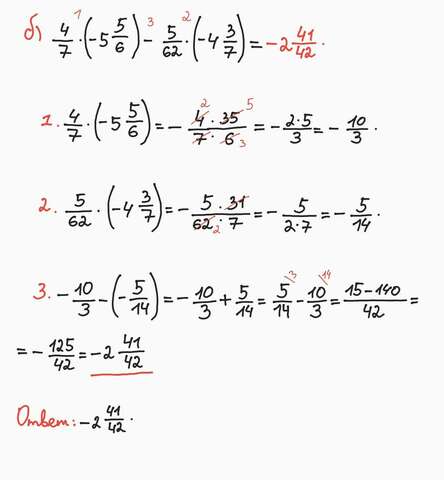 б) 4/7 · (-5 5/6) - 5/62 · (-4 3/7) = -2 41/42.
1. 4/7 · (-5 5/6) = - 4 · 35 / 7 · 6 = - 2 · 5 / 3 = - 10/3.
2. 5/62 · (-4 3/7) = - 5 · 31 / 62 · 7 = - 5 / 2 · 7 = - 5/14.
3. - 10/3 - (- 5/14) = - 10/3 + 5/14 = 5/14 - 10/3 = 15 - 140 / 42 =
= - 125/42 = -2 41/42
Ответ: -2 41/42.